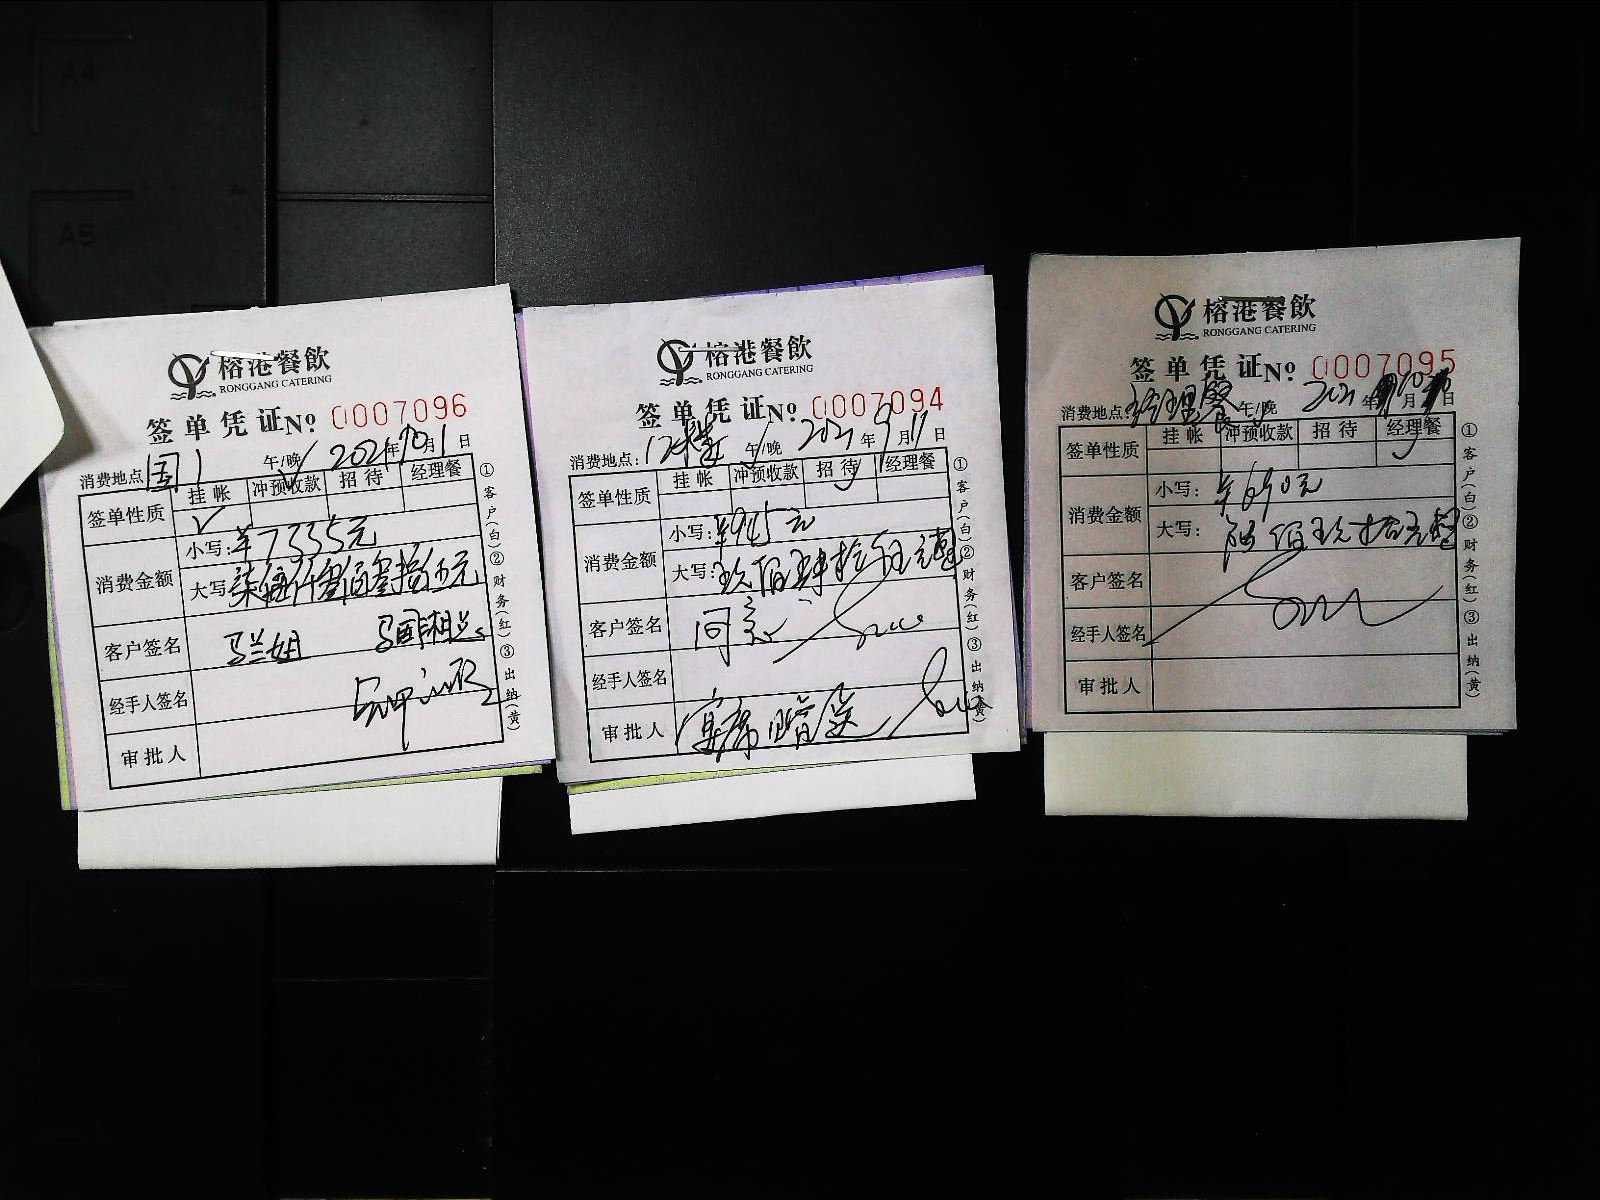 A4
A5
榕港餐飲
RONGGANG CATERING
签单凭证 Nº 0007096
消费地点: 国1 午/晚 2021年10月1日
签单性质 挂帐 冲预收款 招待 经理餐
✓
消费金额 小写: ¥7335元
大写: 柒仟叁佰叁拾伍元
客户签名
经手人签名
审批人
①客户(白)②财务(红)③出纳(黄)
榕港餐飲
RONGGANG CATERING
签单凭证 Nº 0007094
消费地点: 12楼 午/晚 2021年9月11日
签单性质 挂帐 冲预收款 招待 经理餐
消费金额 小写: ¥945元
大写: 玖佰肆拾伍元整
客户签名
经手人签名
审批人
①客户(白)②财务(红)③出纳(黄)
榕港餐飲
RONGGANG CATERING
签单凭证 Nº 0007095
消费地点: 经理餐 午/晚 2021年10月 日
签单性质 挂帐 冲预收款 招待 经理餐
消费金额 小写: ¥690元
大写: 陆佰玖拾元整
客户签名
经手人签名
审批人
①客户(白)②财务(红)③出纳(黄)